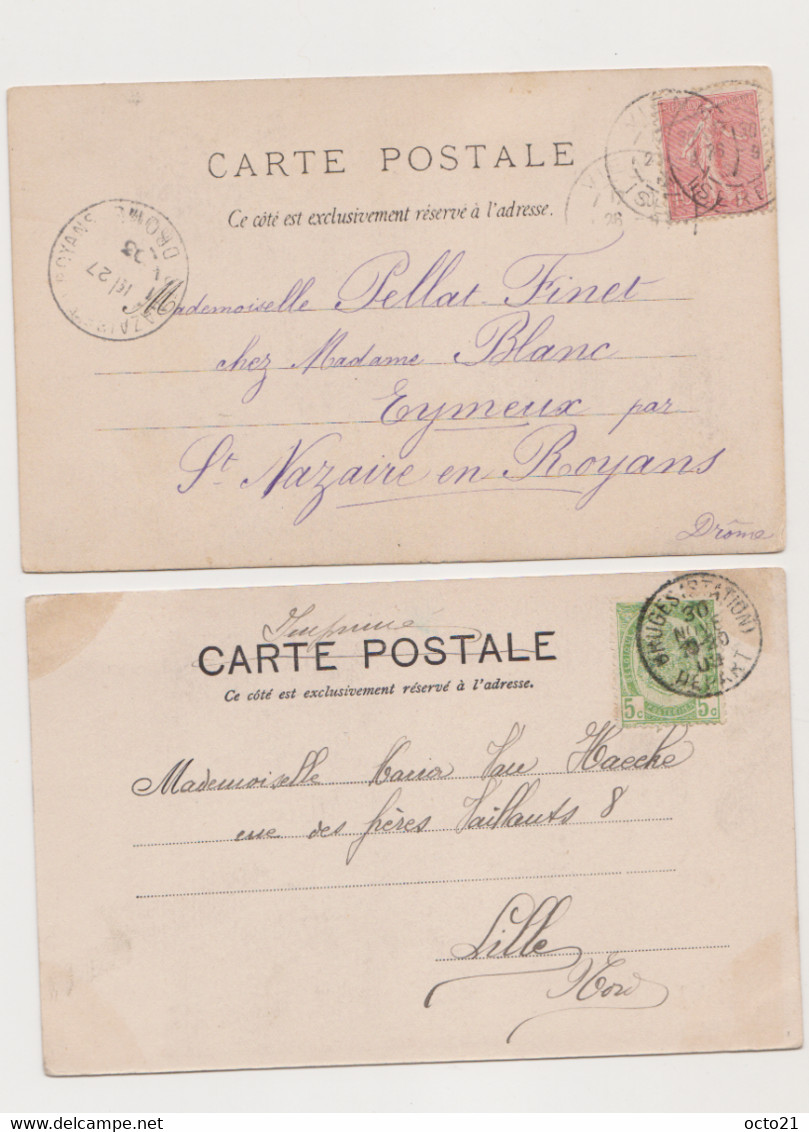 CARTE POSTALE
Ce côté est exclusivement réservé à l'adresse.
ISÈRE
ROYANS DROME
27
Mademoiselle Pellat-Finet
chez Madame Blanc
Eymeux par
St Nazaire en Royans
Drôme
Imprimé
CARTE POSTALE
Ce côté est exclusivement réservé à l'adresse.
BRUGES (STATION)
30
DEPART
5c 5c
Mademoiselle Maria Van Haecke
rue des frères Vaillants 8
Lille
Nord
octo21